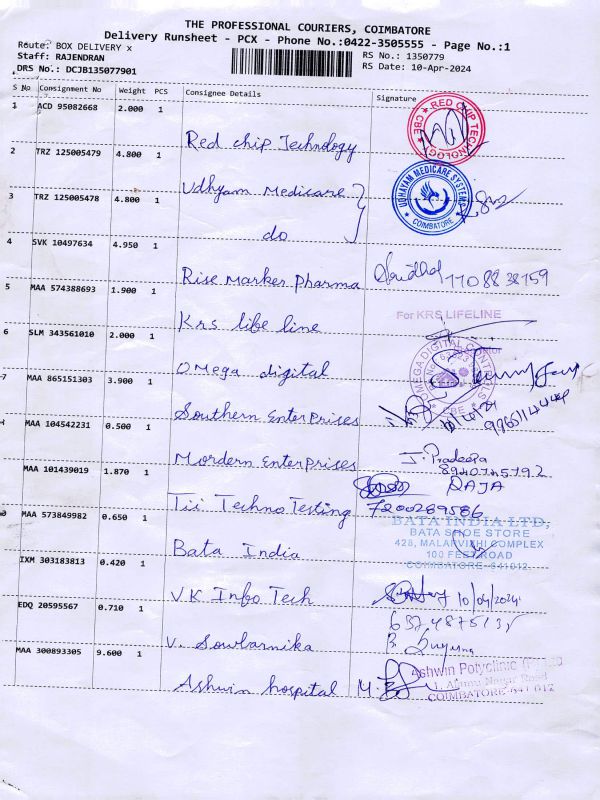 THE PROFESSIONAL COURIERS, COIMBATORE
Delivery Runsheet - PCX - Phone No.:0422-3505555 - Page No.:1
Route: BOX DELIVERY x
Staff: RAJENDRAN
DRS No.: DCJB135077901
RS No.: 1350779
RS Date: 10-Apr-2024
S No Consignment No Weight PCS Consignee Details Signature
1 ACD 95082668 2.000 1 Red chip Technology
RED CHIP TECHNOLOGY CBE
2 TRZ 125005479 4.800 1 Udhyam Medicare
UDHAYAM MEDICARE SYSTEMS COIMBATORE
3 TRZ 125005478 4.800 1 do
4 SVK 10497634 4.950 1 Rise Marker Pharma
5 MAA 574388693 1.900 1 Krs life line
For KRS LIFELINE
6 SLM 343561010 2.000 1 Omega digital
7 MAA 865151303 3.900 1 Southern Enterprises
MAA 104542231 0.500 1 Mordern Enterprises J. Pradeepa
MAA 101439019 1.870 1 Tii Techno Testing RAJA
7200289586
MAA 573849982 0.650 1 Bata India
BATA INDIA LTD,
BATA SHOE STORE
428, MALARVISHI COMPLEX
100 FEET ROAD
COIMBATORE-641012
IXM 303183813 0.420 1 V K Info Tech 10/04/2024
EDQ 20595567 0.710 1 V. Sowbarnika
MAA 300893305 9.600 1 Ashwin hospital
Ashwin Polyclinic
COIMBATORE-641 012